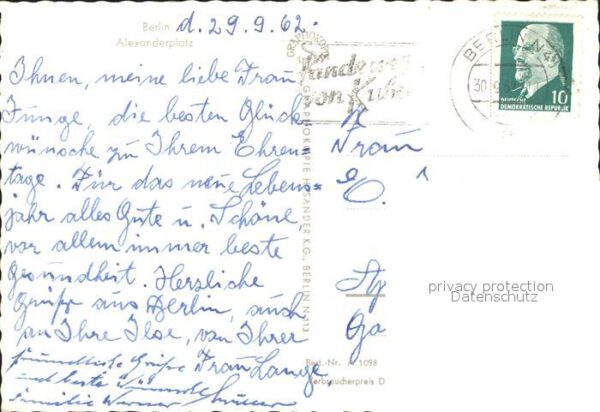 Berlin
Alexanderplatz
d. 29.9.62.
Ihnen, meine liebe Frau
Junge, die besten Glück=
wünsche zu Ihrem Ehren=
tage. Für das neue Lebens=
jahr alles Gute u. Schöne
vor allem immer beste
Gesundheit. Herzliche
Grüße aus Berlin, auch
an Ihre Ilse, von Ihrer
Frau Lange
freundliche Grüße
und beste Wünsche
Familie Werner Müller
GRAPHOKOPIE HANS SANDER K.G., BERLIN N-113
Best.-Nr. A 1098
Verbraucherpreis D
BERLIN N4
30.9.
von
10
DEUTSCHE
DEMOKRATISCHE REPUBLIK
Frau
privacy protection
Datenschutz